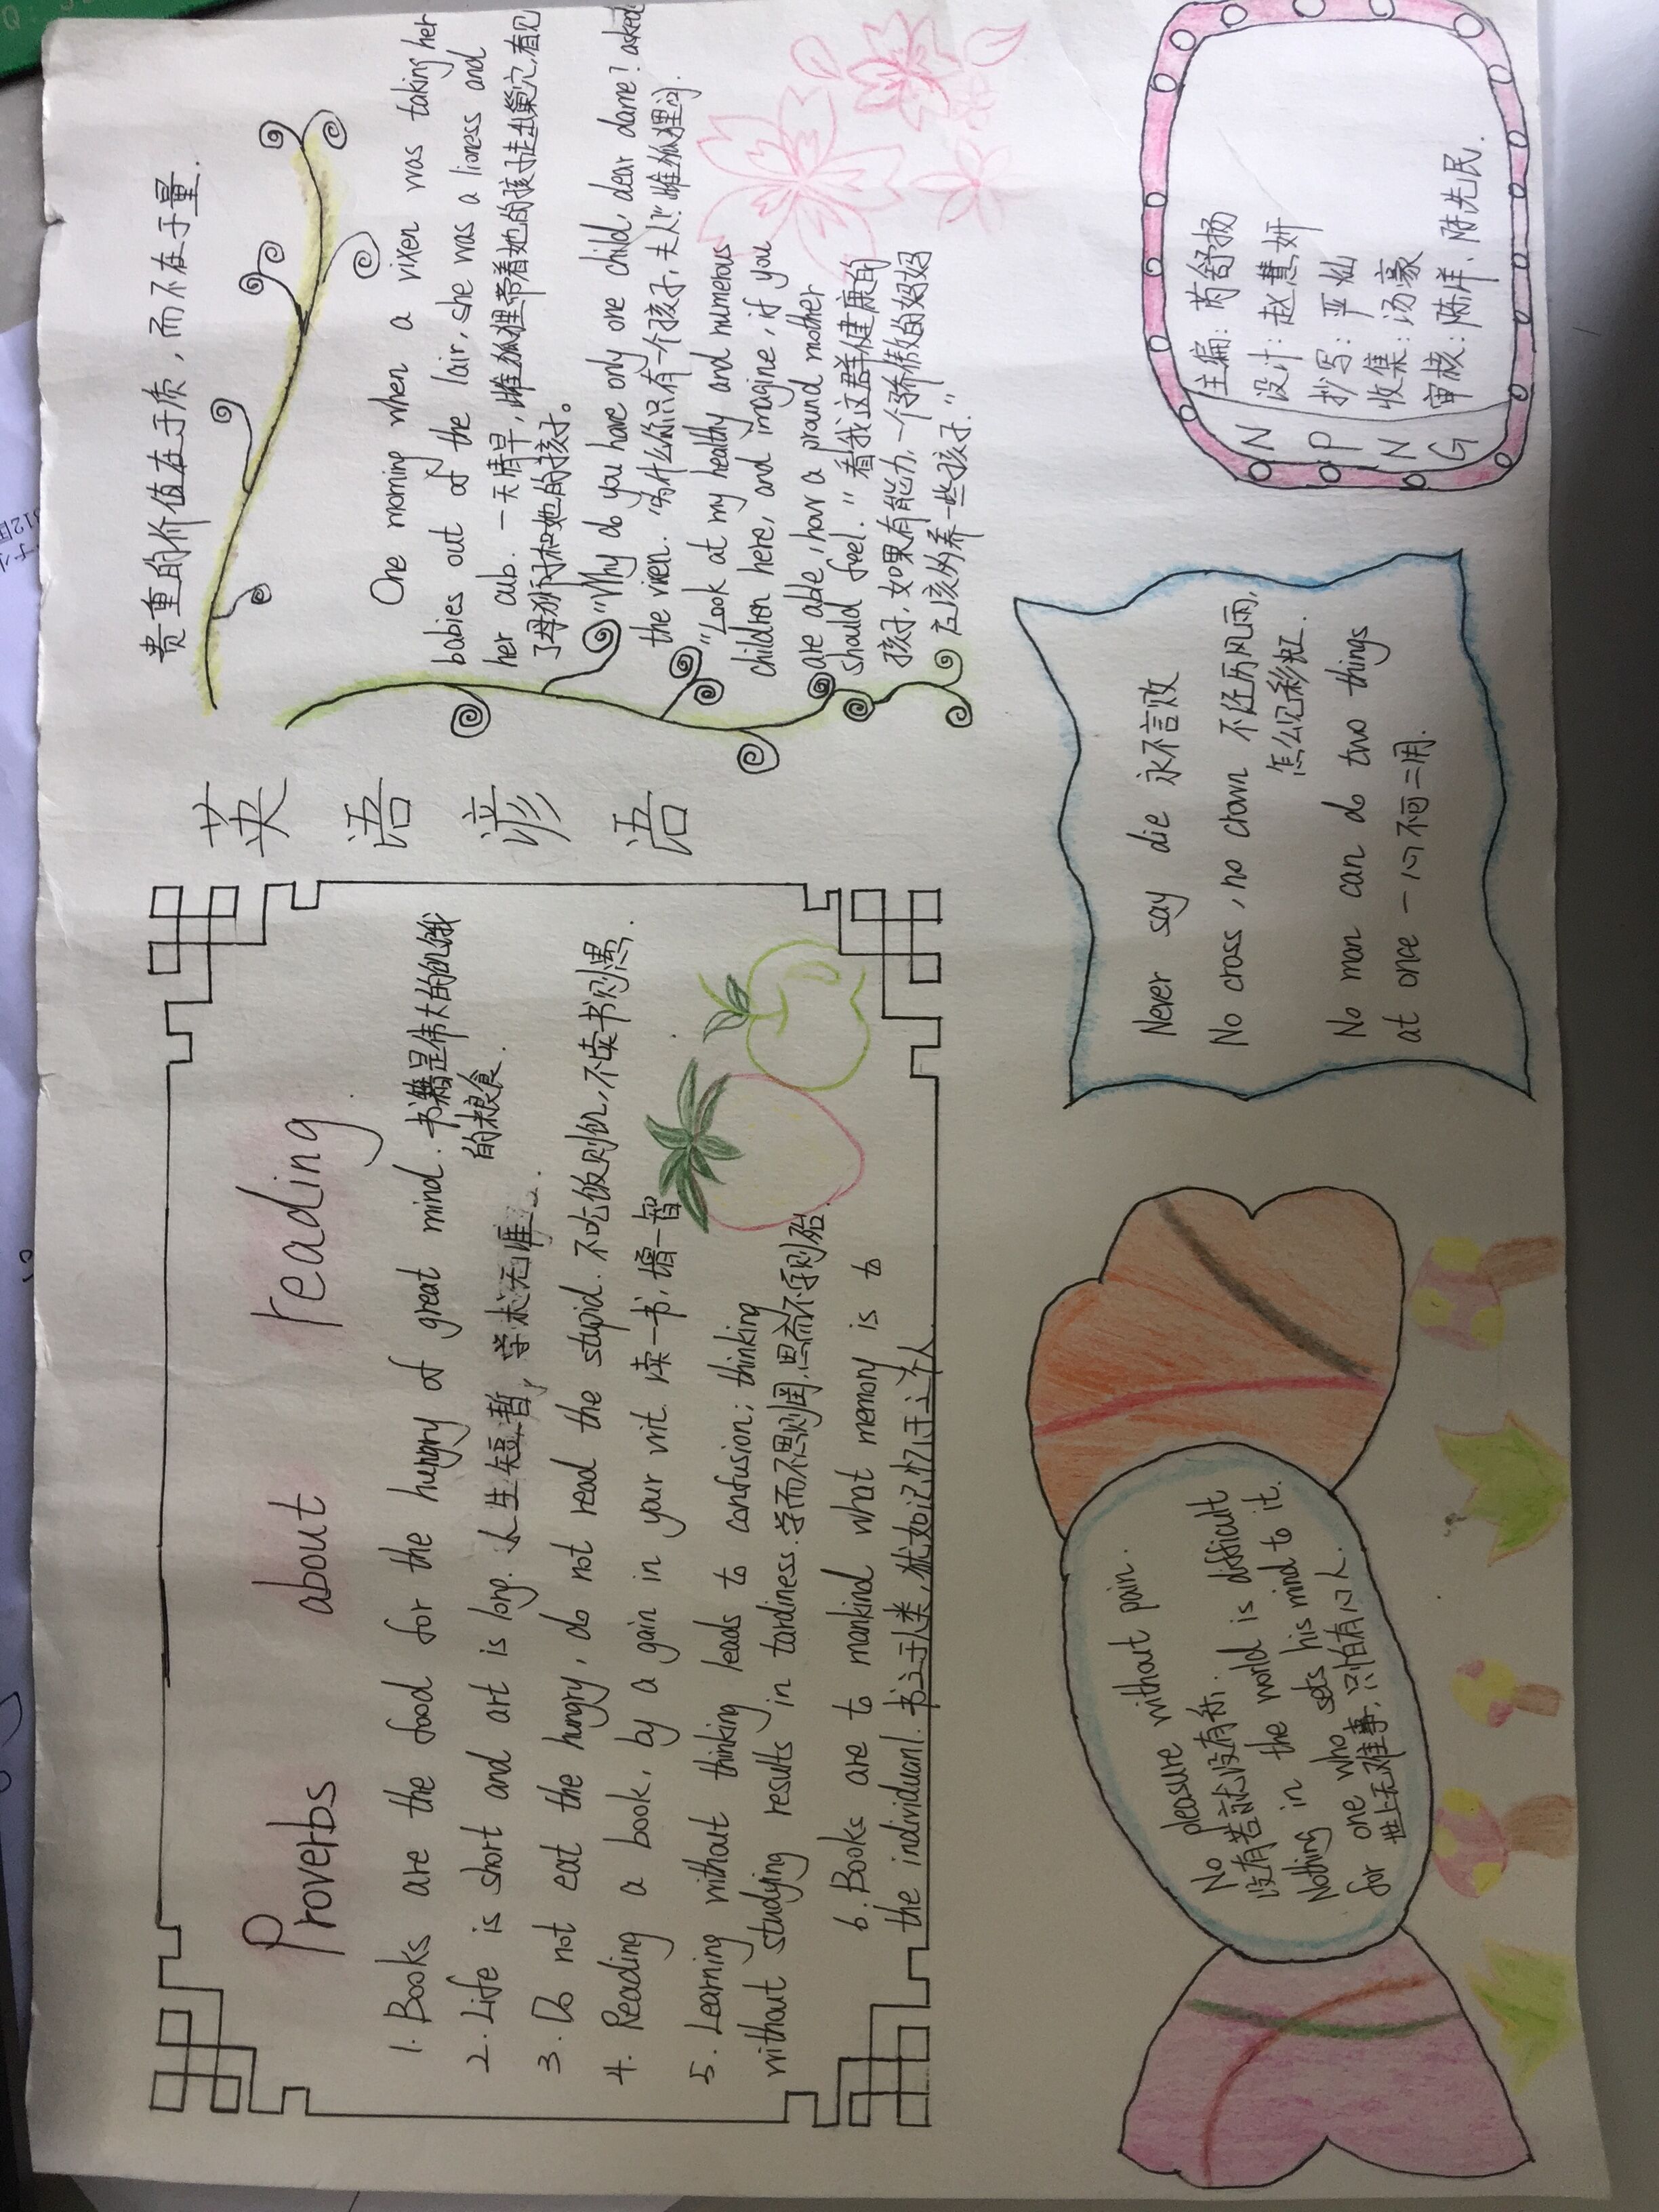 Proverbs about reading
1. Books are the food for the hungry of great mind. 书籍是伟大的饥饿
的粮食.
2. Life is short and art is long. 人生短暂, 学术无涯.
3. Do not eat the hungry, do not read the stupid. 不吃饭则饥, 不读书则愚.
4. Reading a book, by a gain in your wit. 读一书, 增一智
5. Learning without thinking leads to confusion; thinking
without studying results in tardiness. 学而不思则罔, 思而不学则殆.
6. Books are to mankind what memory is to
the individuanl. 书之于人类, 犹如记忆于个人.
英语谚语
贵重的价值在于质, 而不在于量.
One morning when a vixen was taking her
babies out of the lair, she was a lioness and
her cub. 一天清早, 雌狐狸带着她的孩子走出巢穴, 看见
了母狮子和她的孩子。
"Why do you have only one child, dear dame? asked
the vixen. "为什么你只有一个孩子, 夫人?" 雌狐狸问.
"Look at my healthy and numerous
children here, and imagine, if you
are able, how a pround mother
should feel." "看我这群健康的
孩子, 如果有能力, 一个骄傲的妈妈
应该多养一些孩子."
No pleasure without pain.
没有苦就没有乐;
Nothing in the world is difficult
for one who sets his mind to it.
世上无难事, 只怕有心人.
Never say die 永不言败
No cross, no crown 不经历风雨,
怎么见彩虹.
No man can do two things
at once 一心不可二用.
N 主编: 芮舒扬
设计: 赵慧妍
P 抄写: 严灿
N 收集: 汤豪
G 审核: 陈洋、陈先民.